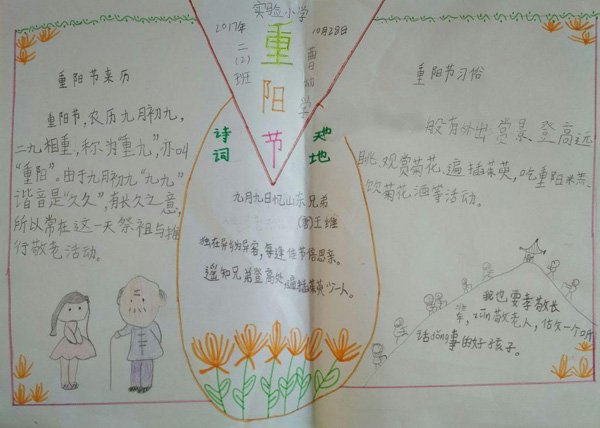 实验小学
2017年
10月28日
二
(2)
班
曹
学
重阳节
重阳节来历
重阳节,农历九月初九,
二九相重,称为"重九",亦叫
"重阳"。由于九月初九"九九"
谐音是"久久",有长久之意,
所以常在这一天祭祖与推
行敬老活动。
诗词
天地
九月九日忆山东兄弟
(唐)王维
独在异乡为异客,每逢佳节倍思亲。
遥知兄弟登高处,遍插茱萸少一人。
重阳节习俗
一般有外出赏景、登高远
眺、观赏菊花、遍插茱萸、吃重阳米糕、
饮菊花酒等活动。
我也要孝敬长
辈,zūn敬老人,估父一个听
话dǒng事的好孩子。